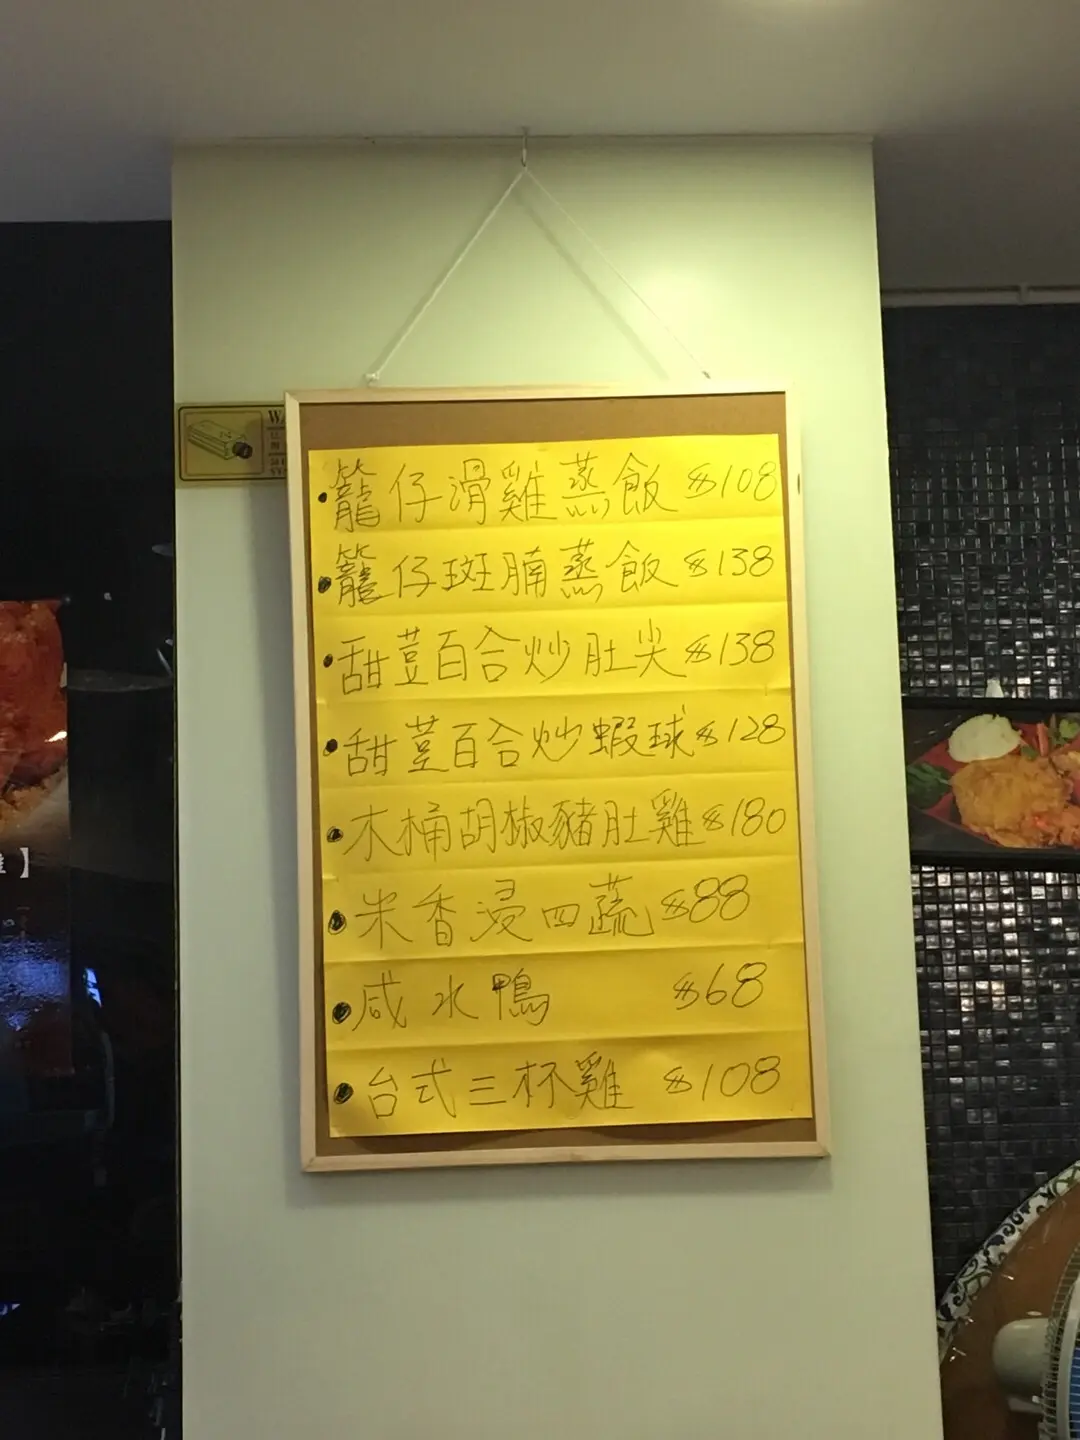 籠仔滑雞蒸飯 $108
籠仔斑腩蒸飯 $138
甜荳百合炒肚尖 $138
甜荳百合炒蝦球 $128
木桶胡椒豬肚雞 $180
米香浸四蔬 $88
咸水鴨 $68
台式三杯雞 $108
】